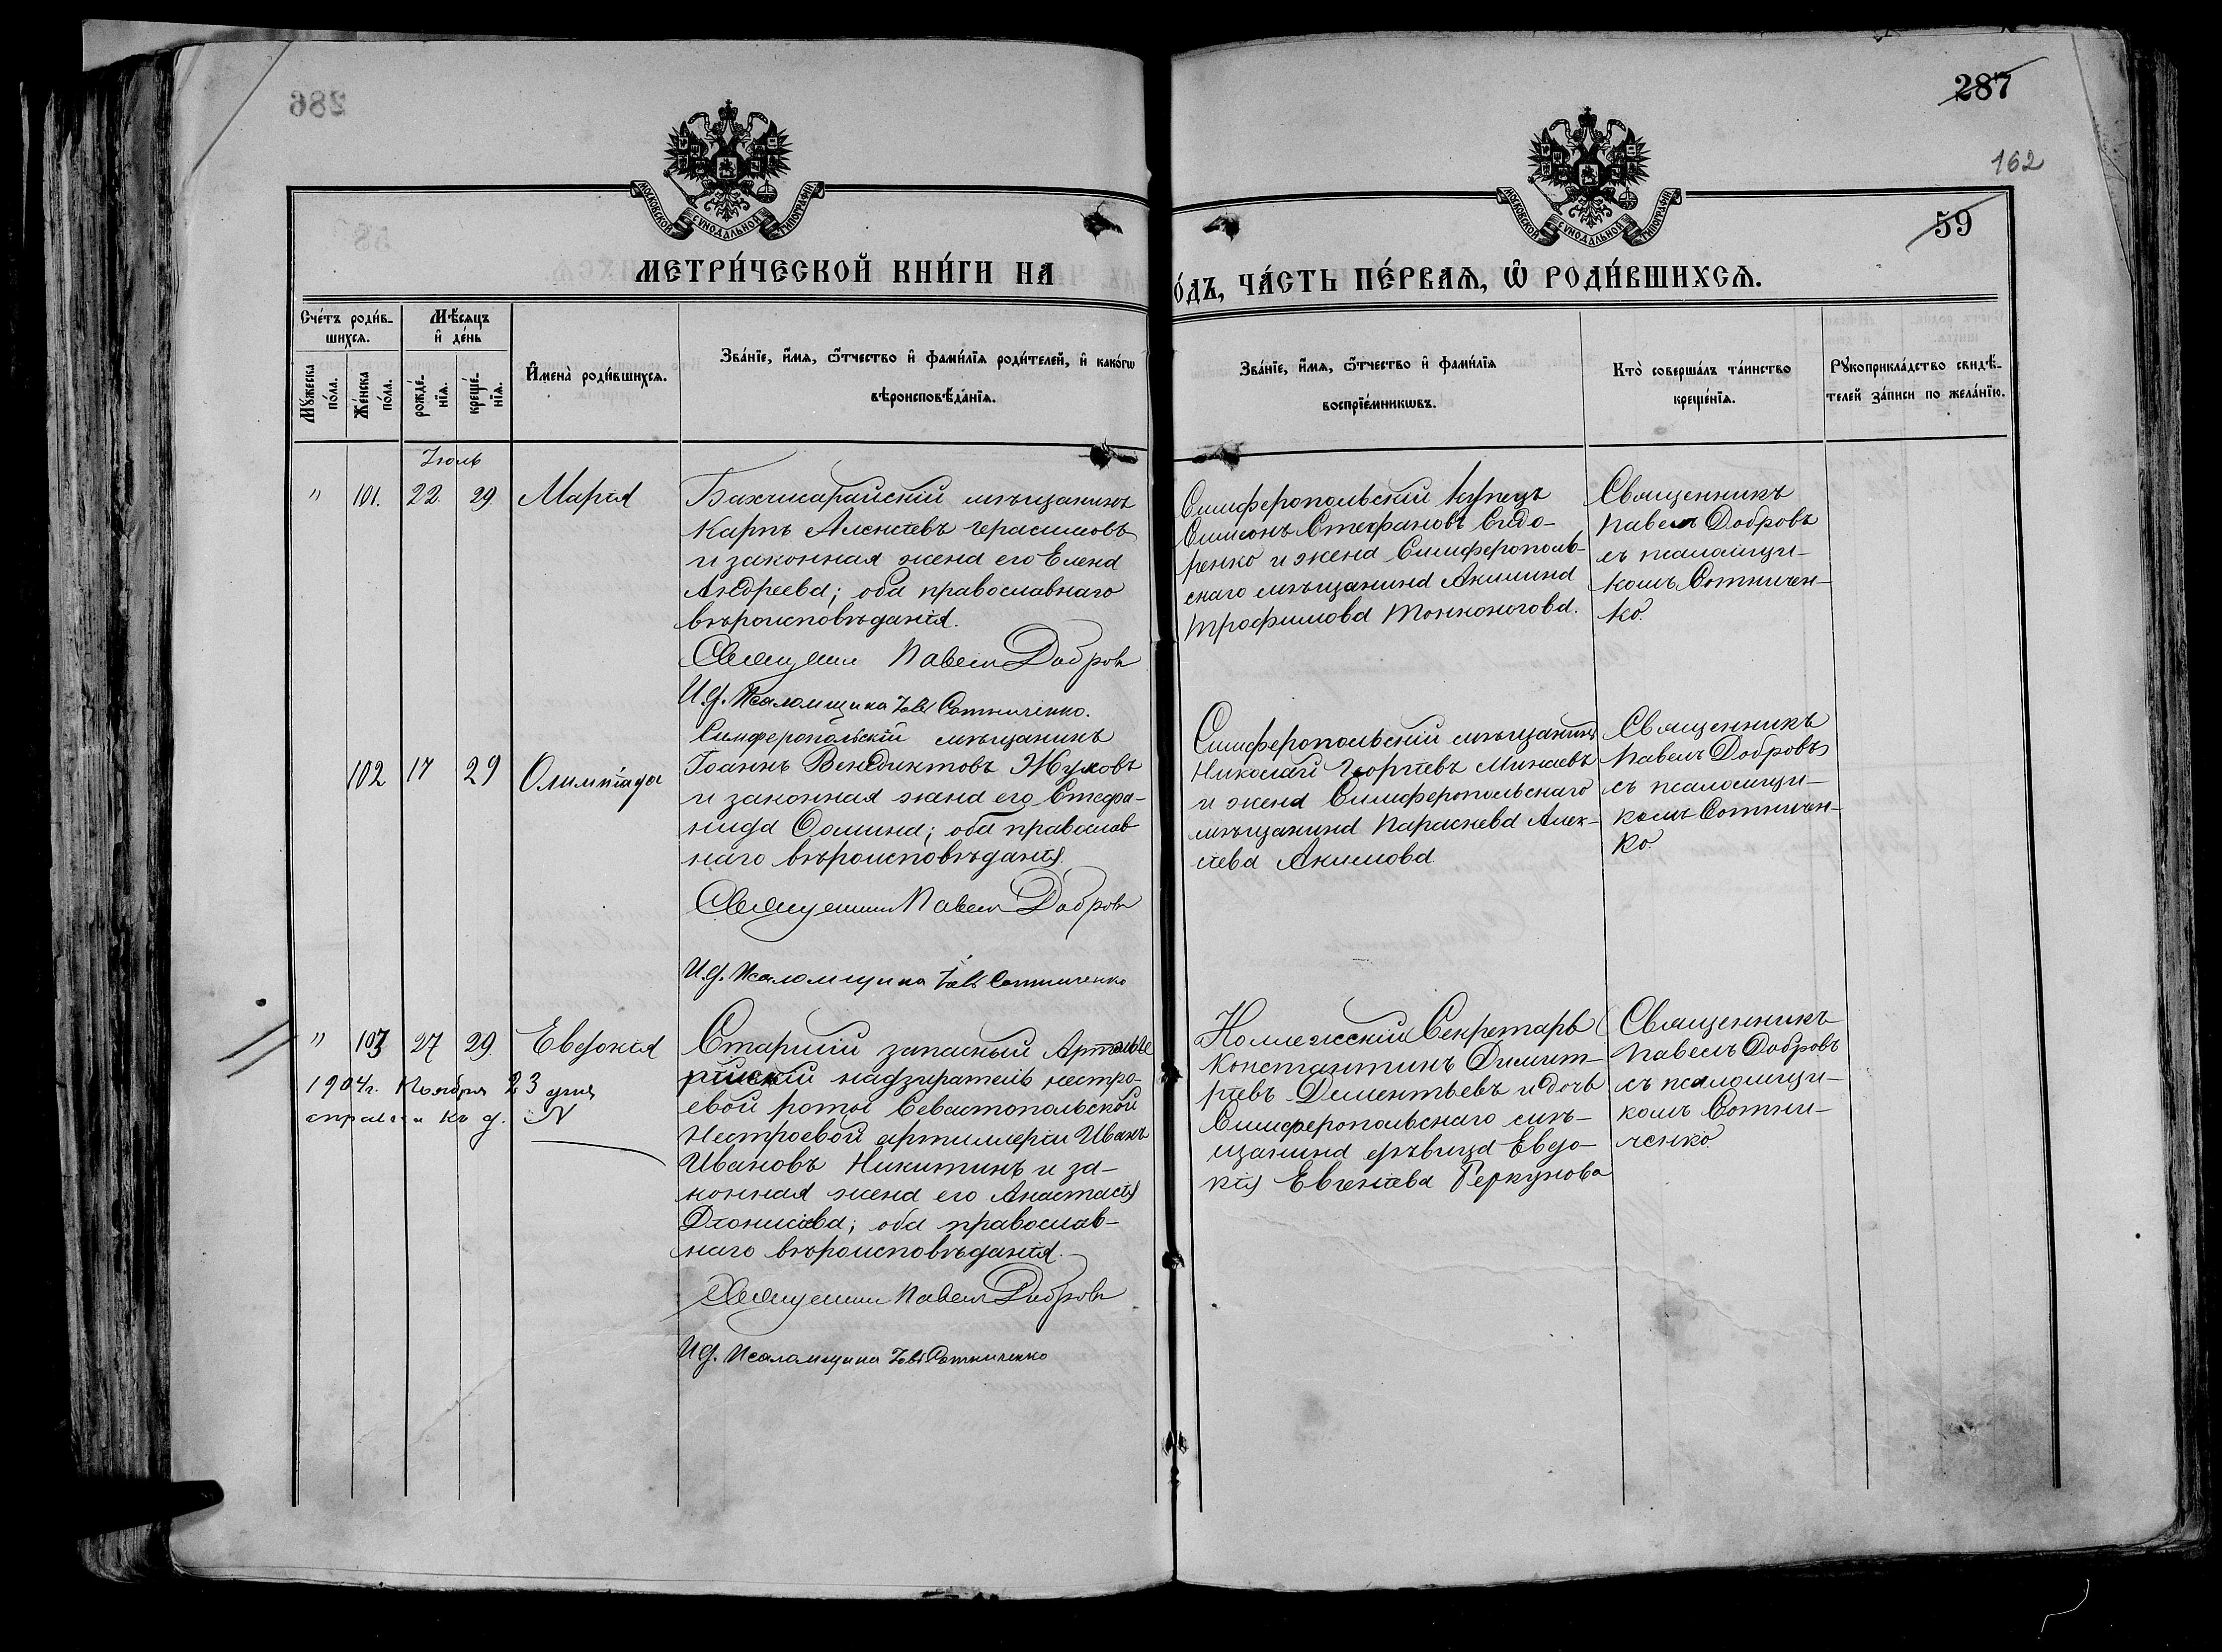 286
287
162
59
МОСКОВСКОЙ СѴНОДАЛЬНОЙ ТИПОГРАФІИ
МОСКОВСКОЙ СѴНОДАЛЬНОЙ ТИПОГРАФІИ
МЕТРИ́ЧЕСКОЙ КНИ́ГИ НА
О́ДЪ, ЧА́СТЬ ПЕ́РВАѦ, Ѡ҆ РОДИ́ВШИХСѦ.
Сче́тъ роди́в-
шихсѧ.
Мꙋ́жеска
по́ла.
Же́нска
по́ла.
Мѣ́сѧцъ
и҆ де́нь
рожде́-
нїѧ.
креще́-
нїѧ.
И҆мена̀ роди́вшихсѧ.
Зва́нїе, и҆́мѧ, ѻ҆́тчество и҆ фами́лїѧ роди́телей, и҆ како́гѡ
вѣроисповѣ́данїѧ.
Зва́нїе, и҆́мѧ, ѻ҆́тчество и҆ фами́лїѧ
воспрїе́мникѡвъ.
Кто̀ соверша́лъ та́инство
креще́нїѧ.
Рꙋкоприкла́дство свидѣ́-
телей за́писи по жела́нїю.
Іюль
" 101. 22 29. Марія
Бахчисарайскій мѣщанинъ
Карпъ Алексіевъ Герасимовъ
и законная жена его Елена
Андреева; оба православнаго
вѣроисповѣданія.
Священник Павел Добров
И.д. Псаломщика Іовъ Сотниченко.
Симферопольскій купецъ
Симеонъ Стефановъ Сидо-
ренко и жена Симферополь-
скаго мѣщанина Акилина
Трофимова Тонконогова.
Священникъ
Павелъ Добровъ
съ псаломщи-
комъ Сотничен-
ко.
102 17 29 Олимпіада
Симферопольскій мѣщанинъ
Іоаннъ Венедиктовъ Жуковъ
и законная жена его Стефа-
нида Ѳомина; оба православ
наго вѣроисповѣданія.
Священник Павел Добров
И.д. Псаломщика Іовъ Сотниченко
Симферопольскій мѣщанинъ
Николай Георгіевъ Минаевъ
и жена Симферопольскаго
мѣщанина Параскева Алек-
сіева Акимова
Священникъ
Павелъ Добровъ
съ псаломщи-
комъ Сотничен-
ко
" 103 27 29. Евдокія
1904г. Ноября 23 дня
справка къ д. N
Старшій запасный Артилле
рійскій надзиратель нестро-
евой роты Севастопольской
Нестроевой артиллеріи Иванъ
Ивановъ Никитинъ и за-
конная жена его Анастасія
Діонисіева; оба православ-
наго вѣроисповѣданія.
Священник Павел Добров
И.д. Псаломщика Іовъ Сотниченко
Коллежскій Секретарь
Константинъ Димит-
ріевъ Дементьевъ и дочь
Симферопольскаго мѣ-
щанина дѣвица Евдо-
кія Евгеніева Геркунова
Священникъ
Павелъ Добровъ
съ псаломщи-
комъ Сотни-
ченко